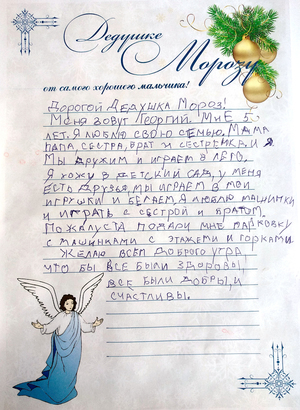 Дедушке
Морозу
от самого хорошего мальчика!
Дорогой Дедушка Мороз!
Меня зовут Георгий. Мне 5
лет. Я люблю свою семью. Мама
папа, сестра, брат и сестрička и я
Мы дружим и играем в лего.
Я хожу в детский сад, у меня
есть друзья, мы играем в мои
игрушки и бегаем. Я люблю машинки
и играть с сестрой и братом.
Пожалуста подари мне парковку
с машинками с этажеми и горками.
Желаю всем доброго утра
что бы все были здоровы,
все были добры, и
счастливы.